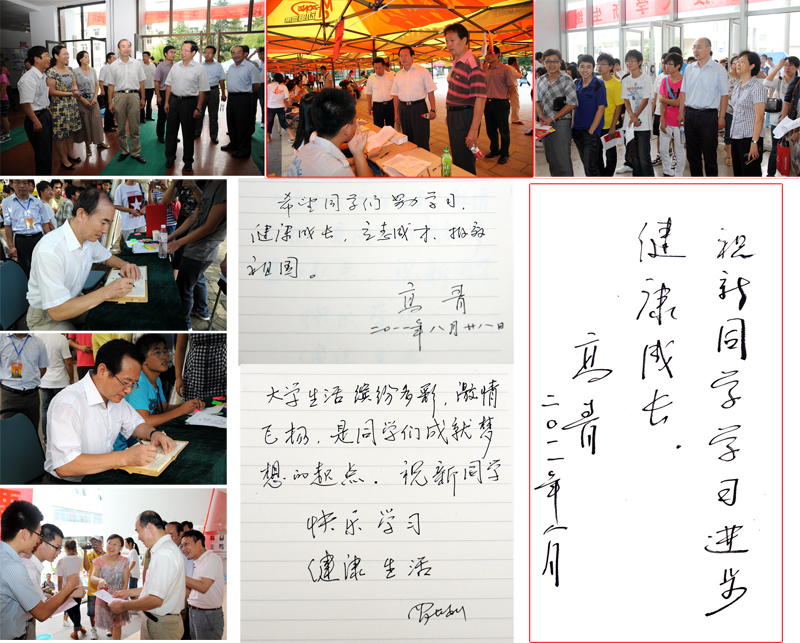 希望同学们努力学习、
健康成长，立志成才、报效
祖国。
高青
二〇一一年八月廿八日
大学生活缤纷多彩，激情
飞扬，是同学们成就梦
想的起点．祝新同学
快乐学习
健康生活
祝新同学学习进步
健康成长．
高青
二〇一一年八月